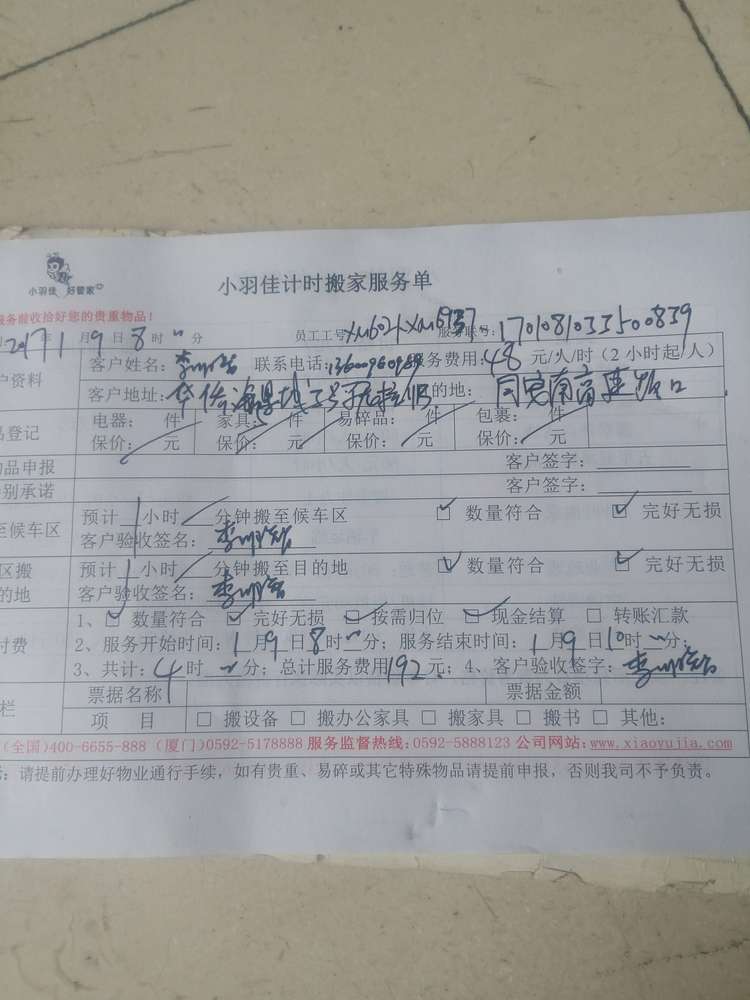 小羽佳 好管家
小羽佳计时搬家服务单
服务前收拾好您的贵重物品!
2017年1月9日8时 分 员工工号 服务联号:1701081033500839
户资料 客户姓名: 联系电话: 服务费用:48元/人/时(2小时起/人)
客户地址: 的地:
品登记 电器: 件 家具: 件 易碎品: 件 包裹: 件
保价: 元 保价: 元 保价: 元 保价: 元
品申报 客户签字:
别承诺 客户签字:
至候车区 预计 小时 分钟搬至候车区 ☑ 数量符合 ☑ 完好无损
客户验收签名:
区搬 预计 小时 分钟搬至目的地 ☑ 数量符合 ☑ 完好无损
的地 客户验收签名:
付费 1、☑ 数量符合 ☑ 完好无损 ☑ 按需归位 ☑ 现金结算 □ 转账汇款
2、服务开始时间:1月9日8时 分;服务结束时间:1月9日10时 分;
3、共计:4时 分;总计服务费用192元;4、客户验收签字:
栏 票据名称 票据金额
项 目 □ 搬设备 □ 搬办公家具 □ 搬家具 □ 搬书 □ 其他:
(全国)400-6655-888(厦门)0592-5178888 服务监督热线:0592-5888123 公司网站:www.xiaoyujia.com
:请提前办理好物业通行手续,如有贵重、易碎或其它特殊物品请提前申报,否则我司不予负责。